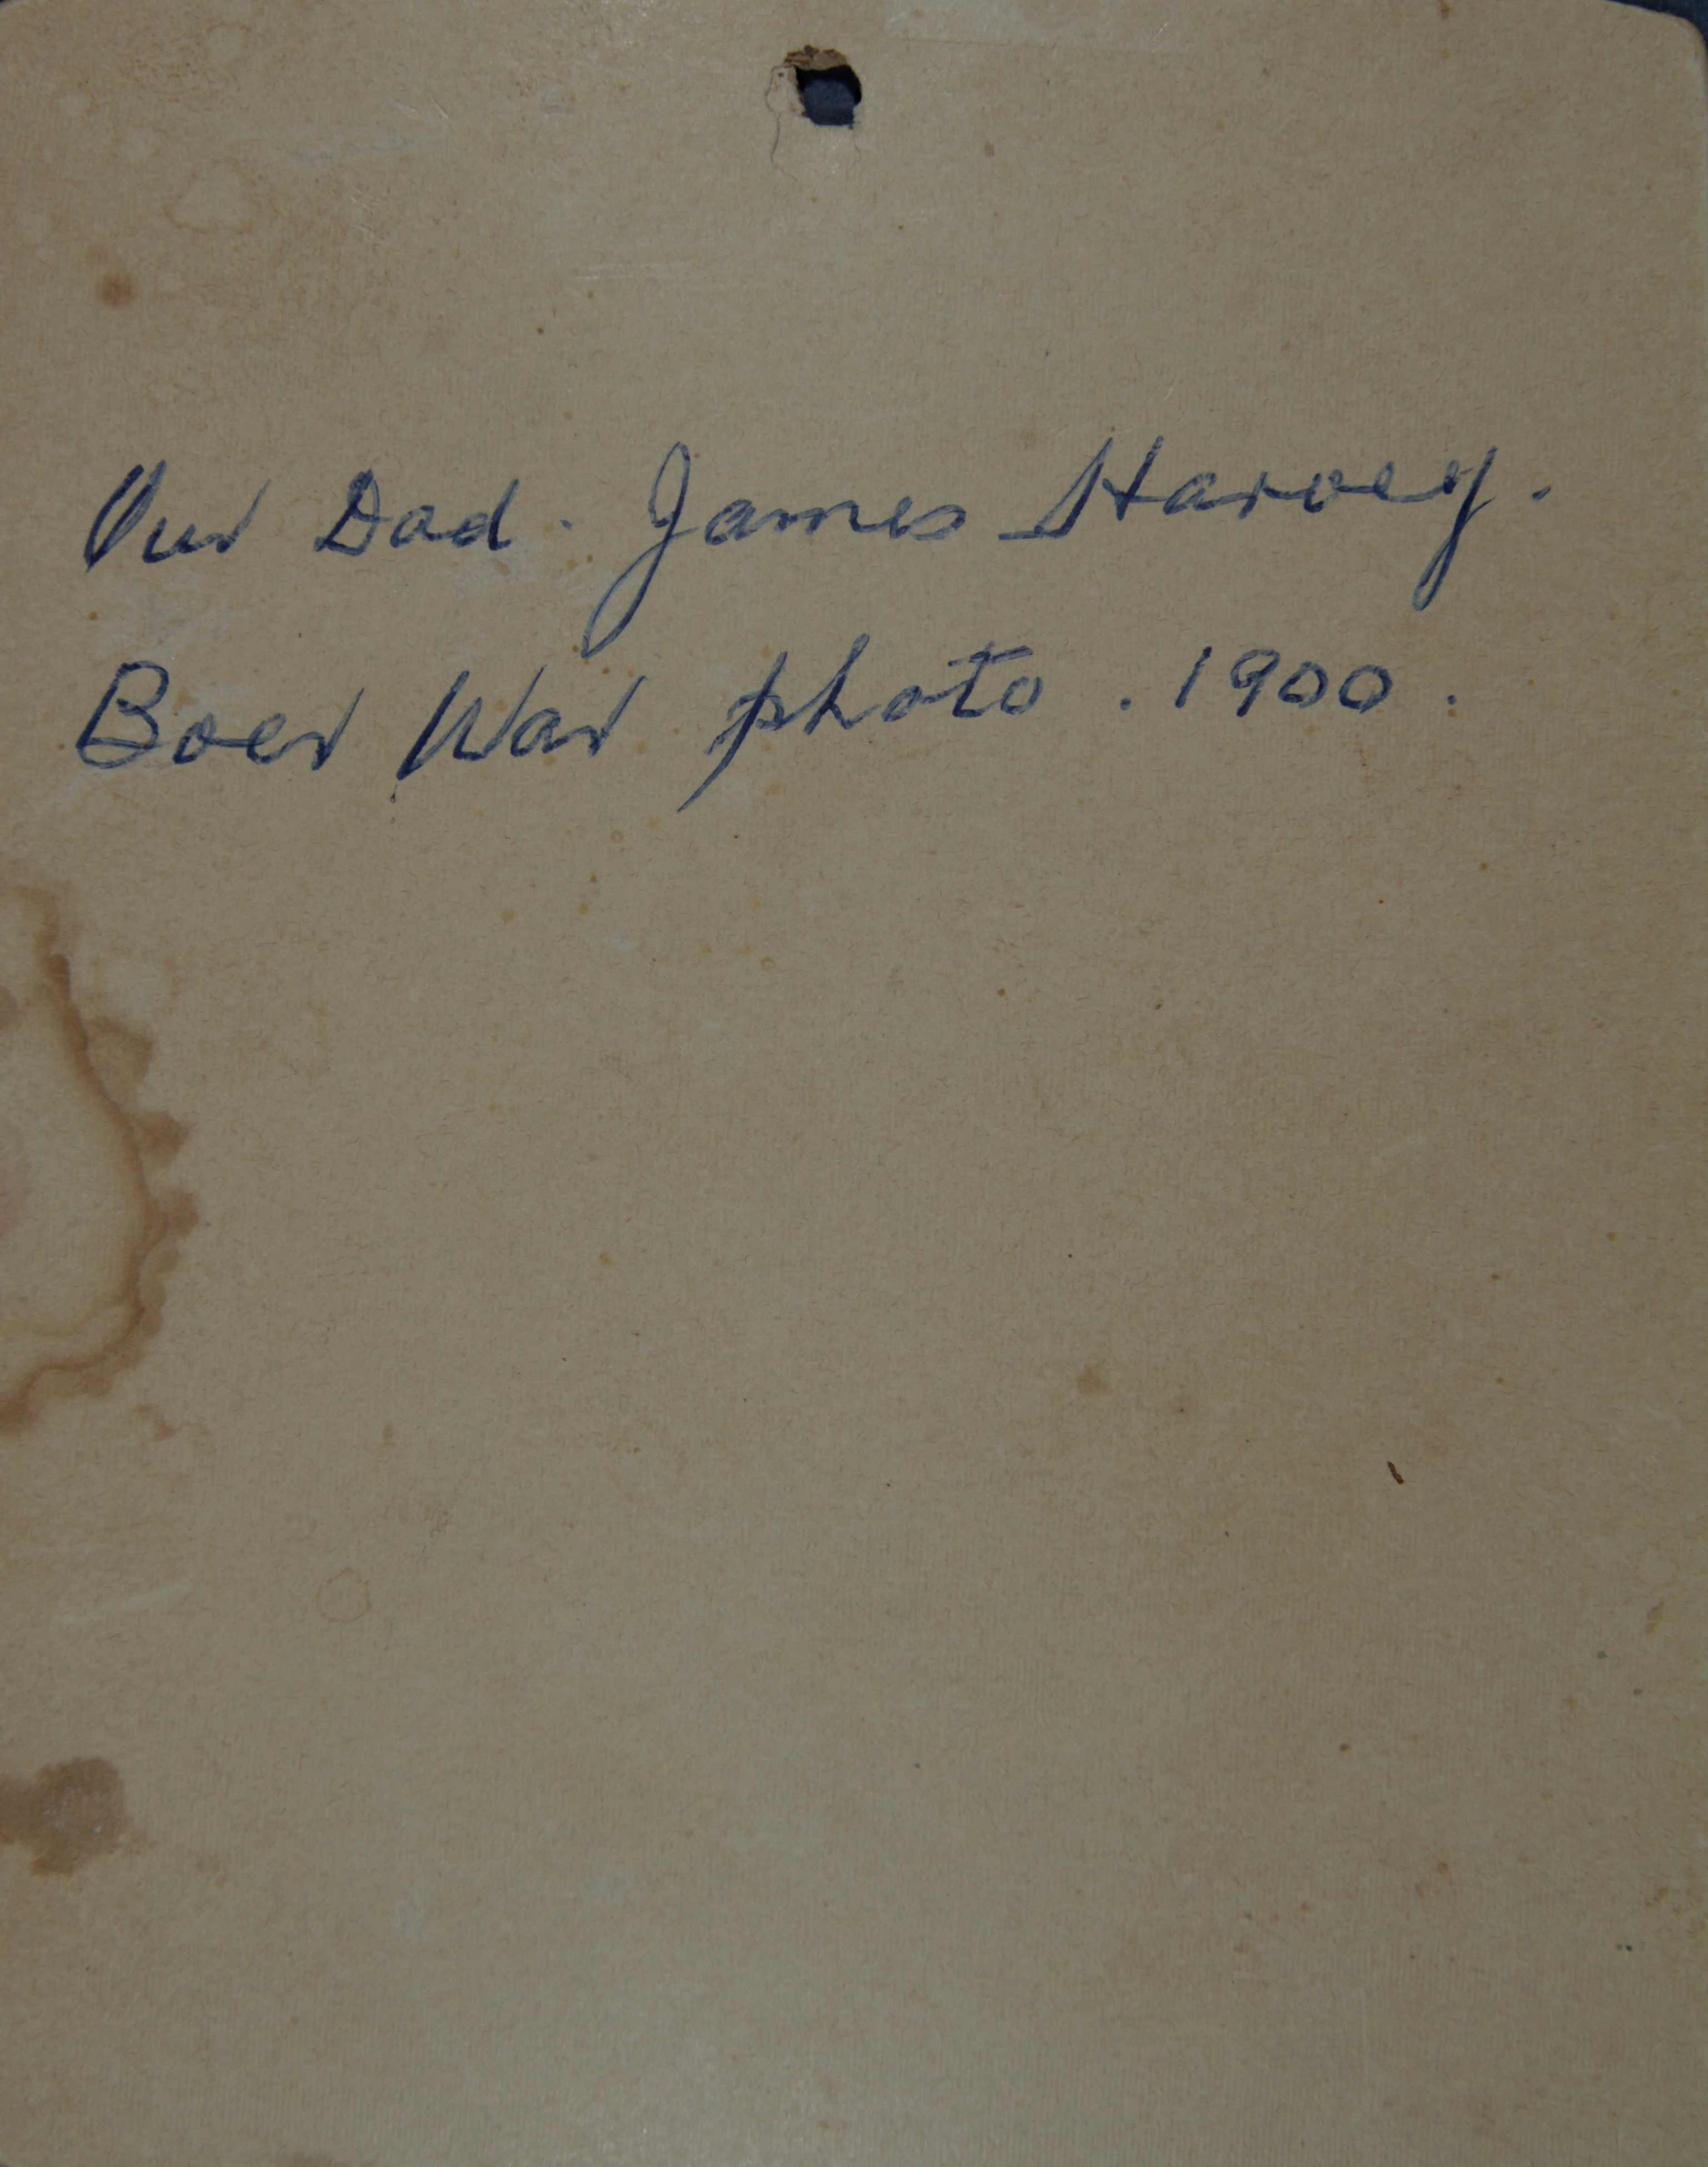 Our Dad. James Harvey.
Boer War photo. 1900.